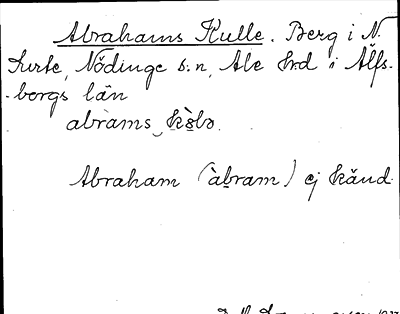 Abrahams Kulle. Berg i N.
Surte, Nödinge s:n, Ale h:d i Älfs-
-borgs län
Abraham (àbram) ej känd.